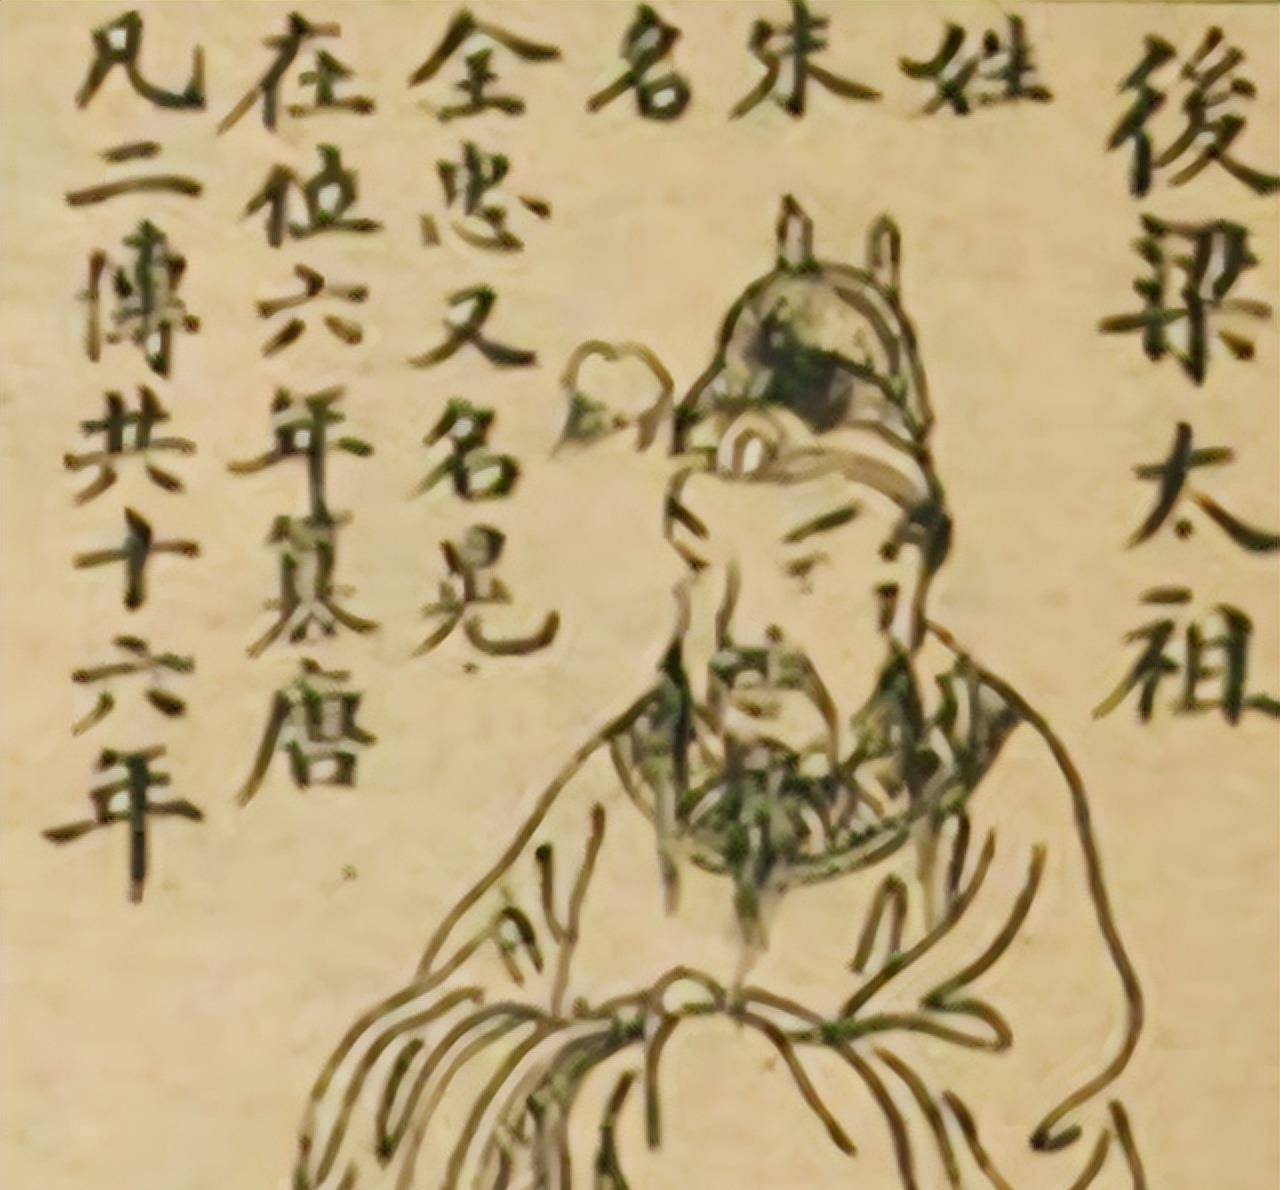 後梁太祖
姓
朱
名
全忠又名晃
在位六年簒唐
凡二傳共十六年